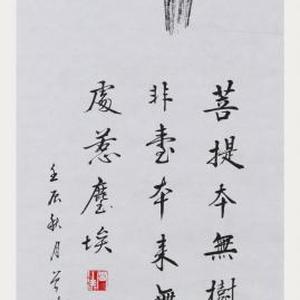 菩提本無樹
非臺本来無
處惹塵埃
壬辰秋月